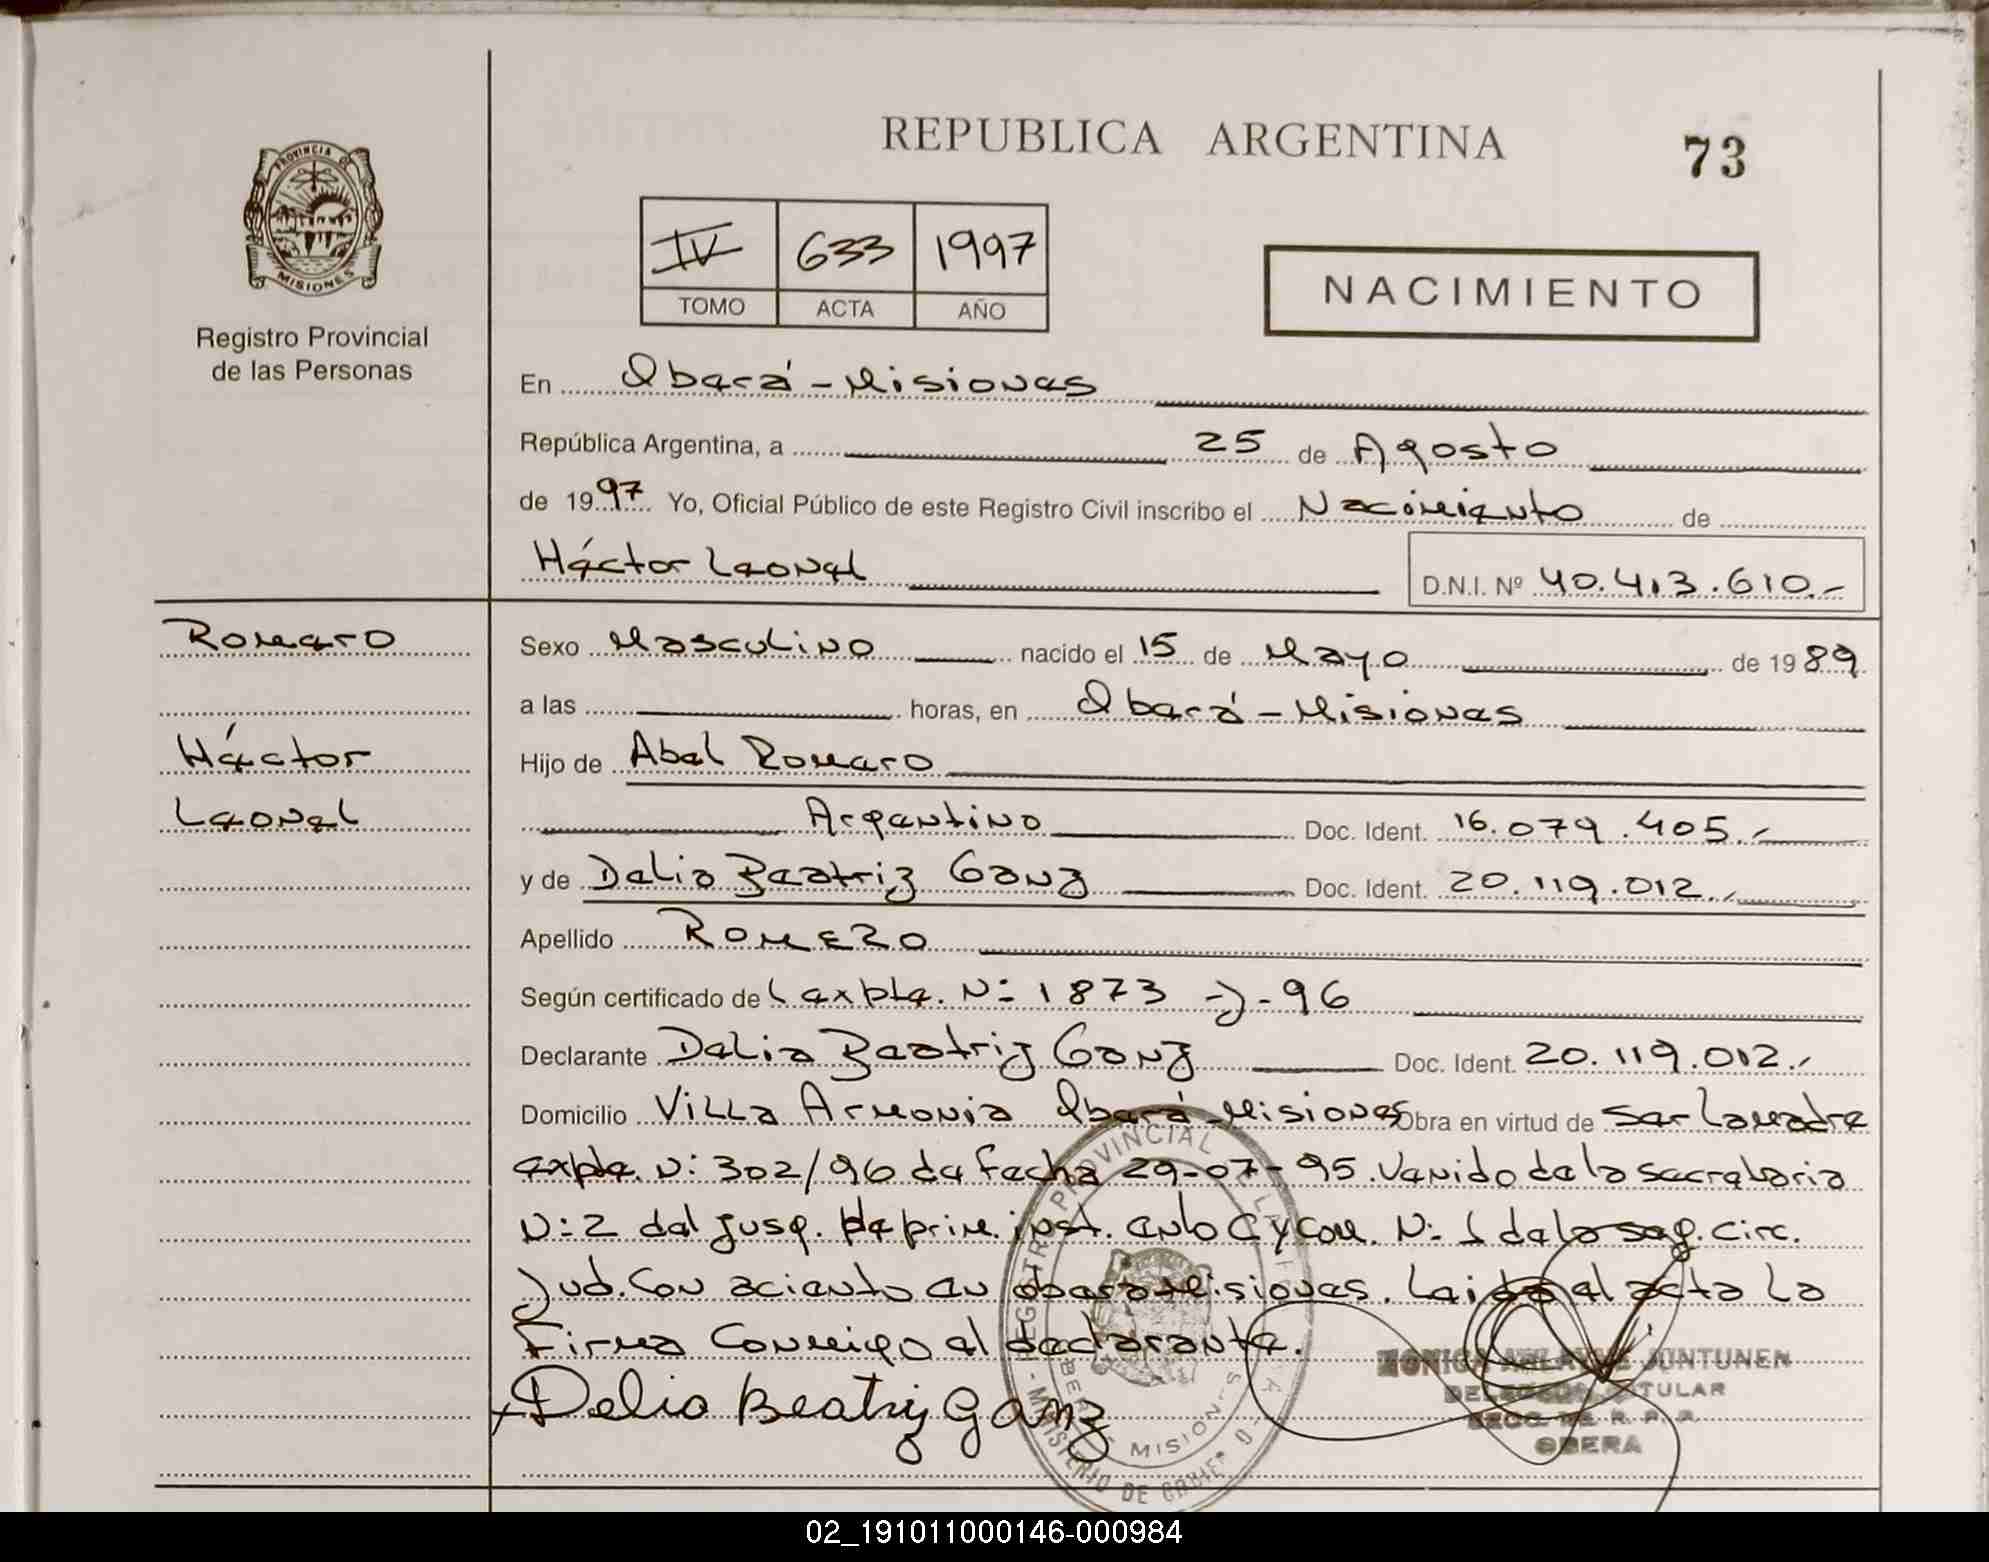 REPUBLICA ARGENTINA
73
PROVINCIA DE
MISIONES
Registro Provincial
de las Personas
IV 633 1997
TOMO ACTA AÑO
NACIMIENTO
En Oberá - Misiones
República Argentina, a 25 de Agosto
de 1997 Yo, Oficial Público de este Registro Civil inscribo el Nacimiento de
Héctor Leonel D.N.I. Nº 40.413.610.-
Romero
Héctor
Leonel
Sexo Masculino nacido el 15 de Mayo de 1989
a las horas, en Oberá - Misiones
Hijo de Abel Romero
Argentino Doc. Ident. 16.079.405.-
y de Delia Beatriz Ganz Doc. Ident. 20.119.012.-
Apellido ROMERO
Según certificado de expte. Nº 1873 -J- 96
Declarante Delia Beatriz Ganz Doc. Ident. 20.119.012.-
Domicilio Villa Armonia Oberá - Misiones Obra en virtud de ser la madre
expte. Nº 302/96 de fecha 29-07-95. Venido de la secretaria
Nº 2 del jusg. de prim. inst. en lo C y Com. Nº 1 de la seg. circ.
Jud. Con aciento en obera Misiones. Leida el acta la
Firma Conmigo el declarante.
Delia Beatriz Ganz
REGISTRO PROVINCIAL DE LAS
MISIONES
MINISTERIO DE GOBIERNO
MONICA JUNTUNEN
TITULAR
SECC. DE R. P. P.
OBERA
02_191011000146-000984